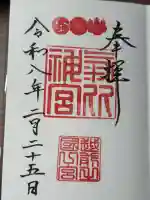 奉拝
氣比
神宮
令和八年二月二十五日